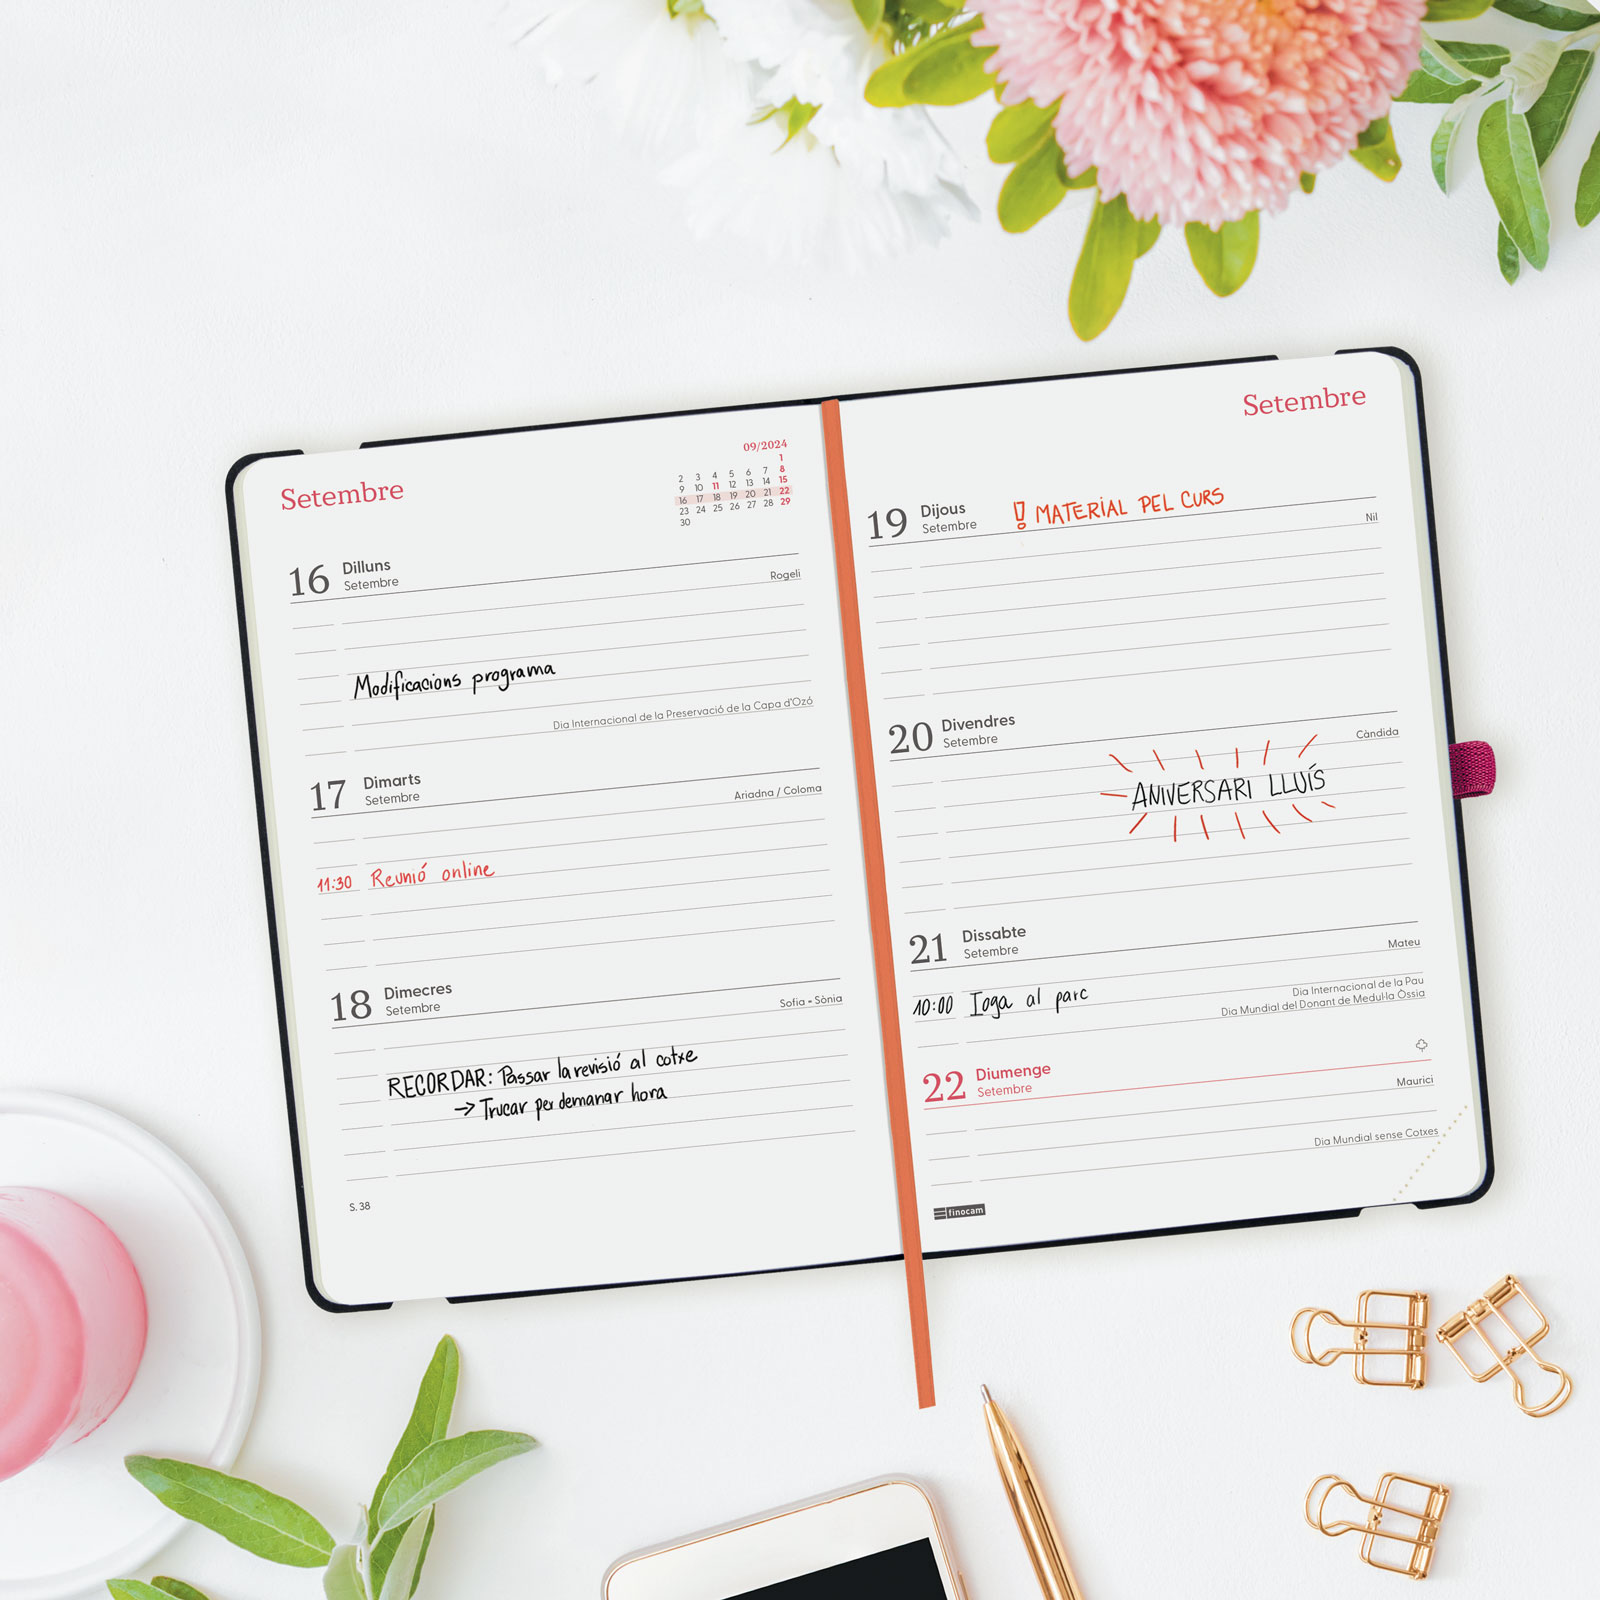 Setembre
09/2024
1
2 3 4 5 6 7 8
9 10 11 12 13 14 15
16 17 18 19 20 21 22
23 24 25 26 27 28 29
30
16 Dilluns
Setembre
Rogeli
Modificacions programa
Dia Internacional de la Preservació de la Capa d'Ozó
17 Dimarts
Setembre
Ariadna / Coloma
11:30 Reunió online
18 Dimecres
Setembre
Sofia • Sònia
RECORDAR: Passar la revisió al cotxe
→ Trucar per demanar hora
S. 38
Setembre
19 Dijous
Setembre
! MATERIAL PEL CURS
Nil
20 Divendres
Setembre
Càndida
ANIVERSARI LLUÍS
21 Dissabte
Setembre
Mateu
10:00 Ioga al parc
Dia Internacional de la Pau
Dia Mundial del Donant de Medul·la Òssia
22 Diumenge
Setembre
Maurici
Dia Mundial sense Cotxes
finocam